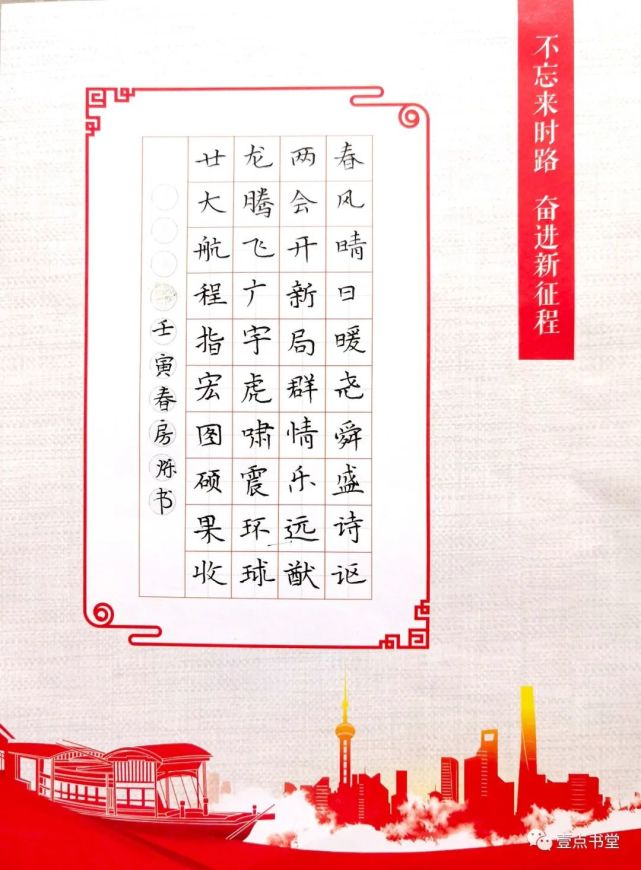 不忘来时路 奋进新征程
春风晴日暖尧舜盛诗讴
两会开新局群情乐远猷
龙腾飞广宇虎啸震环球
廿大航程指宏图硕果收
壬寅春房烁书
壹点书堂